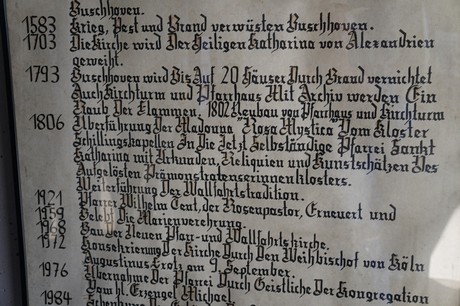 Buschhoven.
1583 Krieg, Pest und Brand verwüsten Buschhoven.
1703 Die Kirche wird Der Heiligen Katharina von Alexandrien
geweiht.
1793 Buschhoven wird Bis Auf 20 Häuser Durch Brand vernichtet
Auch Kirchturm und Pfarrhaus Mit Archiv werden Ein
Raub Der Flammen, 1802 Neubau von Pfarrhaus und Kirchturm
1806 Überführung Der Madonna "Rosa Mystica" Vom Kloster
Schillingskapellen In Die Jetzt Selbständige Pfarrei Sankt
Katharina mit Urkunden, Reliquien und Kunstschätzen Des
Aufgelösten Prämonstratenserinnenklosters.
Weiterführung Der Wallfahrtstradition.
1921 Pfarrer Wilhelm Tent, der Rosenpastor, Erneuert und
1959 Belebt Die Marienverehrung.
1968 Bau Der Neuen Pfarr- und Wallfahrtskirche.
1972 Konsekrierung Der Kirche Durch Den Weihbischof von Köln
Augustinus Frotz am 9. September.
1976 Übernahme Der Pfarrei Durch Geistliche Der Kongregation
Vom hl. Erzengel Michael.
1984